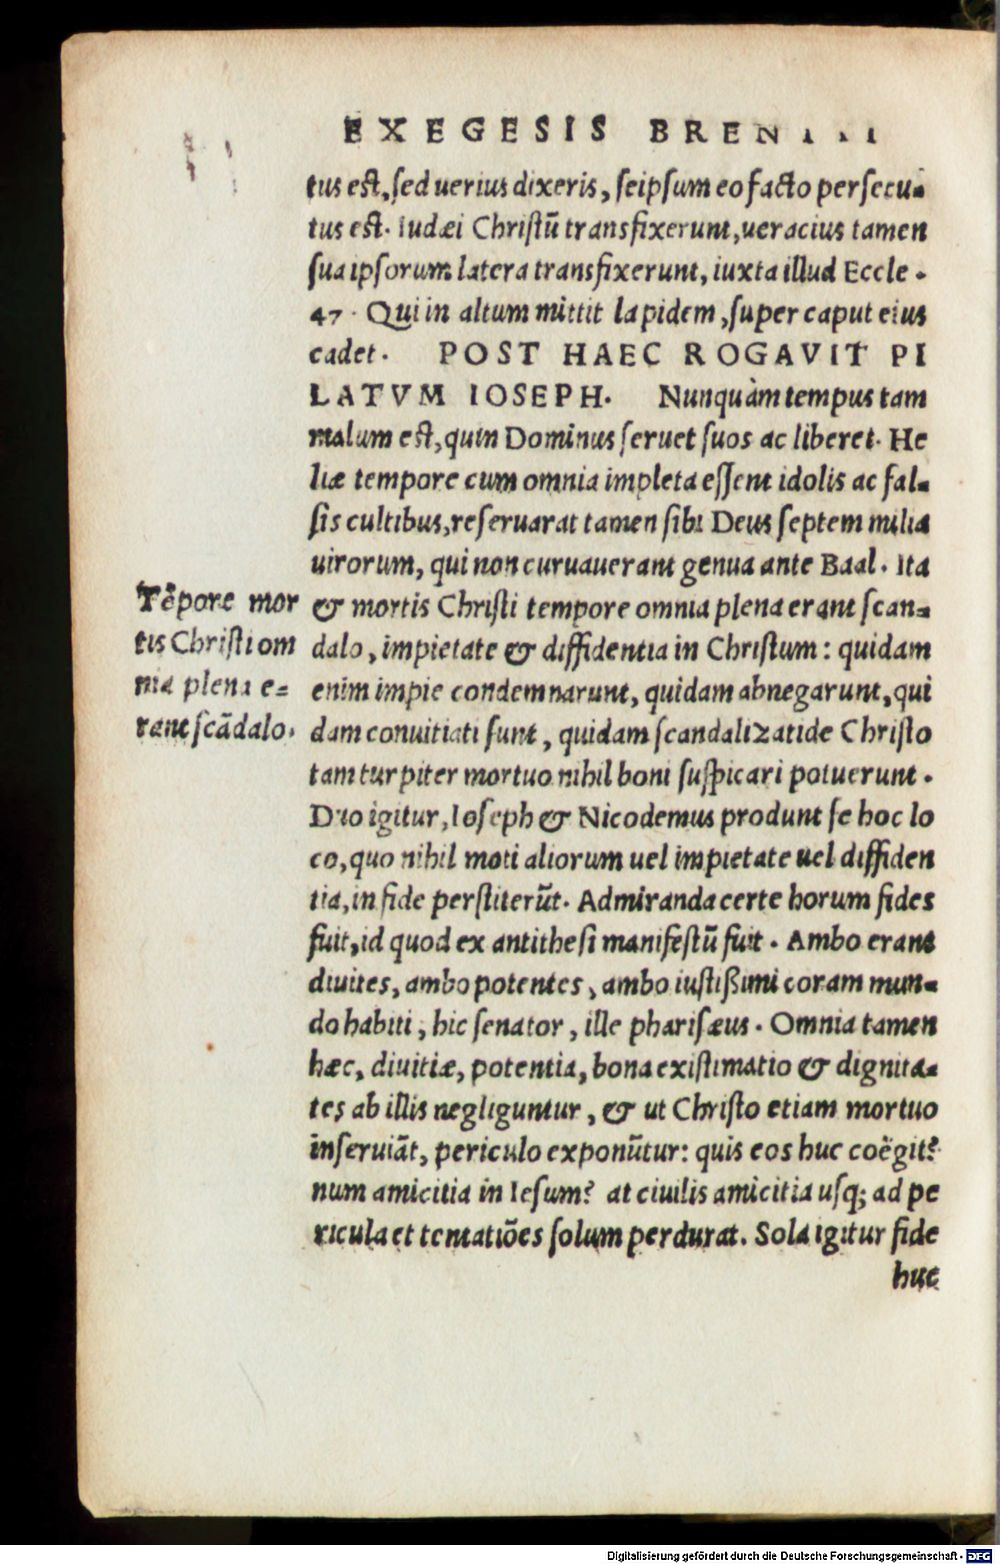 EXEGESIS BRENTII
tus est, sed uerius dixeris, seipsum eo facto persecu-
tus est. Iudæi Christũ transfixerunt, ueracius tamen
sua ipsorum latera transfixerunt, iuxta illud Eccle.
47. Qui in altum mittit lapidem, super caput eius
cadet. POST HAEC ROGAVIT PI
LATVM IOSEPH. Nunquàm tempus tam
malum est, quin Dominus seruet suos ac liberet. He
liæ tempore cum omnia impleta essent idolis ac fal-
sis cultibus, reseruarat tamen sibi Deus septem milia
uirorum, qui non curuauerant genua ante Baal. Ita
& mortis Christi tempore omnia plena erant scan-
dalo, impietate & diffidentia in Christum: quidam
enim impie condemnarunt, quidam abnegarunt, qui
dam conuitiati sunt, quidam scandalizati de Christo
tam turpiter mortuo nihil boni suspicari potuerunt.
Duo igitur, Ioseph & Nicodemus produnt se hoc lo
co, quo nihil moti aliorum uel impietate uel diffiden
tia, in fide perstiterũt. Admiranda certe horum fides
fuit, id quod ex antithesi manifestũ fuit. Ambo erant
diuites, ambo potentes, ambo iustißimi coram mun-
do habiti, hic senator, ille pharisæus. Omnia tamen
hæc, diuitiæ, potentia, bona existimatio & dignita-
tes ab illis negliguntur, & ut Christo etiam mortuo
inseruiãt, periculo exponũtur: quis eos huc coëgit?
num amicitia in Iesum? at ciuilis amicitia usq; ad pe
ricula et tentatiões solum perdurat. Sola igitur fide
huc
Tẽpore mor
tis Christi om
nia plena e=
rant scãdalo.
Digitalisierung gefördert durch die Deutsche Forschungsgemeinschaft - DFG